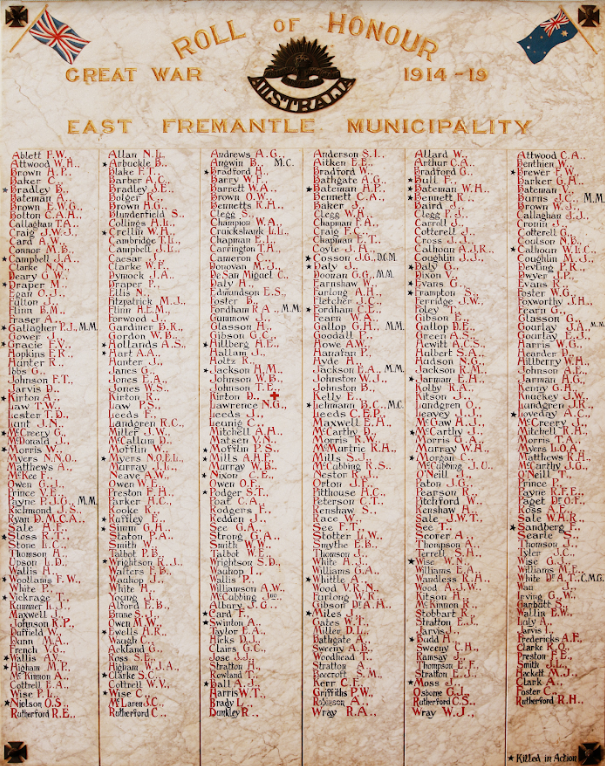 ROLL OF HONOUR
GREAT WAR 1914-19
AUSTRALIA
EAST FREMANTLE MUNICIPALITY
Ablett F.W. Allan N.L. Andrews A.G., Anderson S.L. Allard W., Attwood C.A.
Attwood W.H. Arbuckle B., Angwin B., M.C. Aitken E.E. Arthur C.A.
Brown H.P. Blake F.T. Bradford H., Bradford W. Bradford G., Brewer F.W.
Baker C. Barber A.C. Barry W.F. Bathgate A.G. Bull F. Barker G.H.
Bradley B. Bradley J.E. Barrett W.A. Bateman A.P. Bateman W.H. Bateman V.
Bateman A. Bolger J. Brown O.W. Bennett C.A. Bennett K. Burns J.C. M.M.
Brown E.W.G. Brown H.G. Bennetts R.H. Baker J. Baker J. Brown W.G.
Bolton C.A.H. Blunderfield S. Clegg S. Clegg W.H. Clegg F. Callaghan J.J.
Callaghan T.A. Collings H.L. Champion W.A. Chapman F.A. Carroll J. Cronin J.
Craig J.W.J. Crellin W.G. Cruickshank L.L. Craig F. Cotterell J. Cotterell G.
Card A.W. Cambridge F.L. Chapman E. Chapman E.T. Cross J.J. Coulson N.
Connor M.B. Campbell J.L. Carrington T.H. Coyle J.F. Calhoun A.J.R. Calhoun W.E.C.
Campbell J.A. Caesar Cameron C. Cosson J.G. D.C.M. Coughlin J.J. Coughlin M.J.
Clarke N.S. Clarke W.F. Donovan M.J. Daly J. Daly G. Devling P.R.
Deary G.W. Dymock J.A. De San Miguel C. Doonan G.G. M.M. Dixon Dwyer J.P.
Draper M. Draper P. Daly H. Earnshaw W. Evans G. Evans R.
Egan C.J. Ellis N. Edmundson E.S. Furlong A.H. Frampton S. Foster W.G.
Fulton J. Fitzpatrick M.J. Foster J. Fletcher J.C. Ferridge J.W. Foxworthy J.H.
Flinn B.M. Flinn H.E.M. Fordham R.A. M.M. Fordham C.E. Foley T. Fearn G.
Fraser A. Forwood J. Gunmow J. Fearn W. Gibson L. Glasson G.
Gallagher P.J. M.M. Gardiner B.R. Glasson H. Gallop G.H. M.M. Gallop D.E. Gourlay J.A. M.M.
Gower J. Gordon W.B. Gibson G.C. Goodall F. Green A.S. Gourlay E.J.
Gracie F.V. Hollands A.S. Hillberg H.E. Howe A.W. Hewitt A.C.S. Harris W.G.
Hopkins F.R. Hart A.A. Hallam J. Hanrattin F. Hulbert S.A. Heorder P.
Hunter R. Hunter J. Holtz R. Hyde H. Hudson N.G. Hillberg W.H.
Ibbs O. Janes G. Jackson H.M. Jackson E.A. M.M. Jackson R.M. Johnson A.E.
Johnson F.T. Jones E.A. Johnson W.B. Johnston W.J. Jarman E.H. Jarman A.G.
Jarvis D. Jones W.S. Johnson T.E. Johnston B. Kolby R.A. Kenny G.H.
Kirton A. Kirton R. Kirton D. Kelly E. Kitson J. Knuckey J.W.
Law T.W. Law F.S. Lawrence N.G. Lehmann B.C. M.C. Lundgren O. Lundgren J.R.
Lester T.D. Leeds F. Leedes J. Leeds C.E.P. Leavey J. Loveday A.C.
Lunt J.N. Lundgren R.C. Leunig C. Maxwell E.A. McGaw H.J. McCreery J.
McCrery G. Miller J.W. Mitchell A.H. McCarthy D. McCarthy J. Mitchell R.H.
McDonald J. McCallum D. Matsen V.N. Morris R.W. Morris G.A. Morris T.A.
Morris W. Mofflin W. Mofflin P.S. McMurtrie K.H. Murray W.H. Myers L.O.R.
Myers N.N.O. Myers N.O.E.L. Mills A.H.F. Mills S.J. Morgan C. Matthews R.
Matthews A. Murray J.L. Murray W.B. McCubbing R.S. McCubbing J.U. McCarthy J.G.
McKee F. Neave A.W. Nixon C.E. Nestor B. Neil J. O'Neill T.
Owen G.J. Owen W.E. Owen O.F. Orton J.F. Pator J.G. Prince J.
Prince V.E. Preston F.H. Podger S.T. Pitthouse H.C. Pearson R. Payne R.F.E.
Payne P.J.G. M.M. Parker H.C. Poat C.A. Peterson C.T. Pitchford H. Paget D.C.F.
Richmond J.S. Rooke R. Rodgers F. Renshaw S. Renshaw H. Ross A.E.
Ryan D.M.C.A. Ruffley E. Redden J. Race W. Sate J.W.T. Sate W.H.R.
Sale A.H. Simm G.H. See G.A. See F.T. See T. Sandberg F.
Sloss R.T. Staton P.A. Strong G.A. Stotter L.W. Scorer A. Searle S.
Stone L.C. Smith W. Smith W.H. Smythe E.B. Thompson A. Thomson L.
Thomson A. Talbot P.B. Talbot W.E. Thomson C. Terrell S.H. Tyler J.C.
Upson L.D. Wrightson R.J. Wrightson S.D. White H.J. Wise W.N. Wise G.J.
Wallis H. Walters F.B. Wauhop T. Williams G.A. Williams E.A. Williams M.F.
Woollams F.W. Wauhop J. Wallis P. Whittle A. Wandless R.H. White D.A.T. C.M.G.
White P. White H. Williamson A.W. Wood V.R.N. Wood A.J.W. Wan
Vickrage T. Young J. Coldbury Jnr. Furlong W.R. Kitson H. Irving G.W.
Rummer L.J. Alford E.B. Albary J.G. Gibson D.A.H. McKinnon R. Garbutt S.
Maxwell J. Brine S. Card F. Miles J. Stobbart R. Wallin E.W.
Johnson R.P. Owen M.W. Swinton A. Gates W.F. Stratton E.J. Lily A.
Duffield W. Ewells H.R. Taylor E.A. Miller D.L. Jarvis J. Jarvis L.
Nunn W.A. Waugh C. Hicks D. Bathgate A. Budd H. Fredericks A.F.
French V.G. Ackland G. Clairs G.C. Sweeny A.B. Sweeney C.H. Clarke R.O.
Wallis A.V. Ross S.E. Jose J.J. Woodhead T. Ramsay J. Preston F.E.
Higham M.P. Higham W.J.A. Stratton H. Stratton Thompson E.F. Smith J.L.
McKinnon A. Clarke S.C. Rowland T. Roycroft S.M. Stratton E.J. Hackett M.J.
Cottrell E.A. Cottrell W.V. Ball A.J. Kerr C.F. Moss J. Clark A.
Wise P.L. Wise C. Harris W.T. Griffiths P.W. Osborne G.J. Foster C.
Nielson O.S. McLaren J.C. Brady L. Robinson A. Rutherford C.S. Rutherford R.H.
Rutherford R.E. Rutherford C. Dunkley R. Wray R.A. Wray W.J.
★ Killed in Action